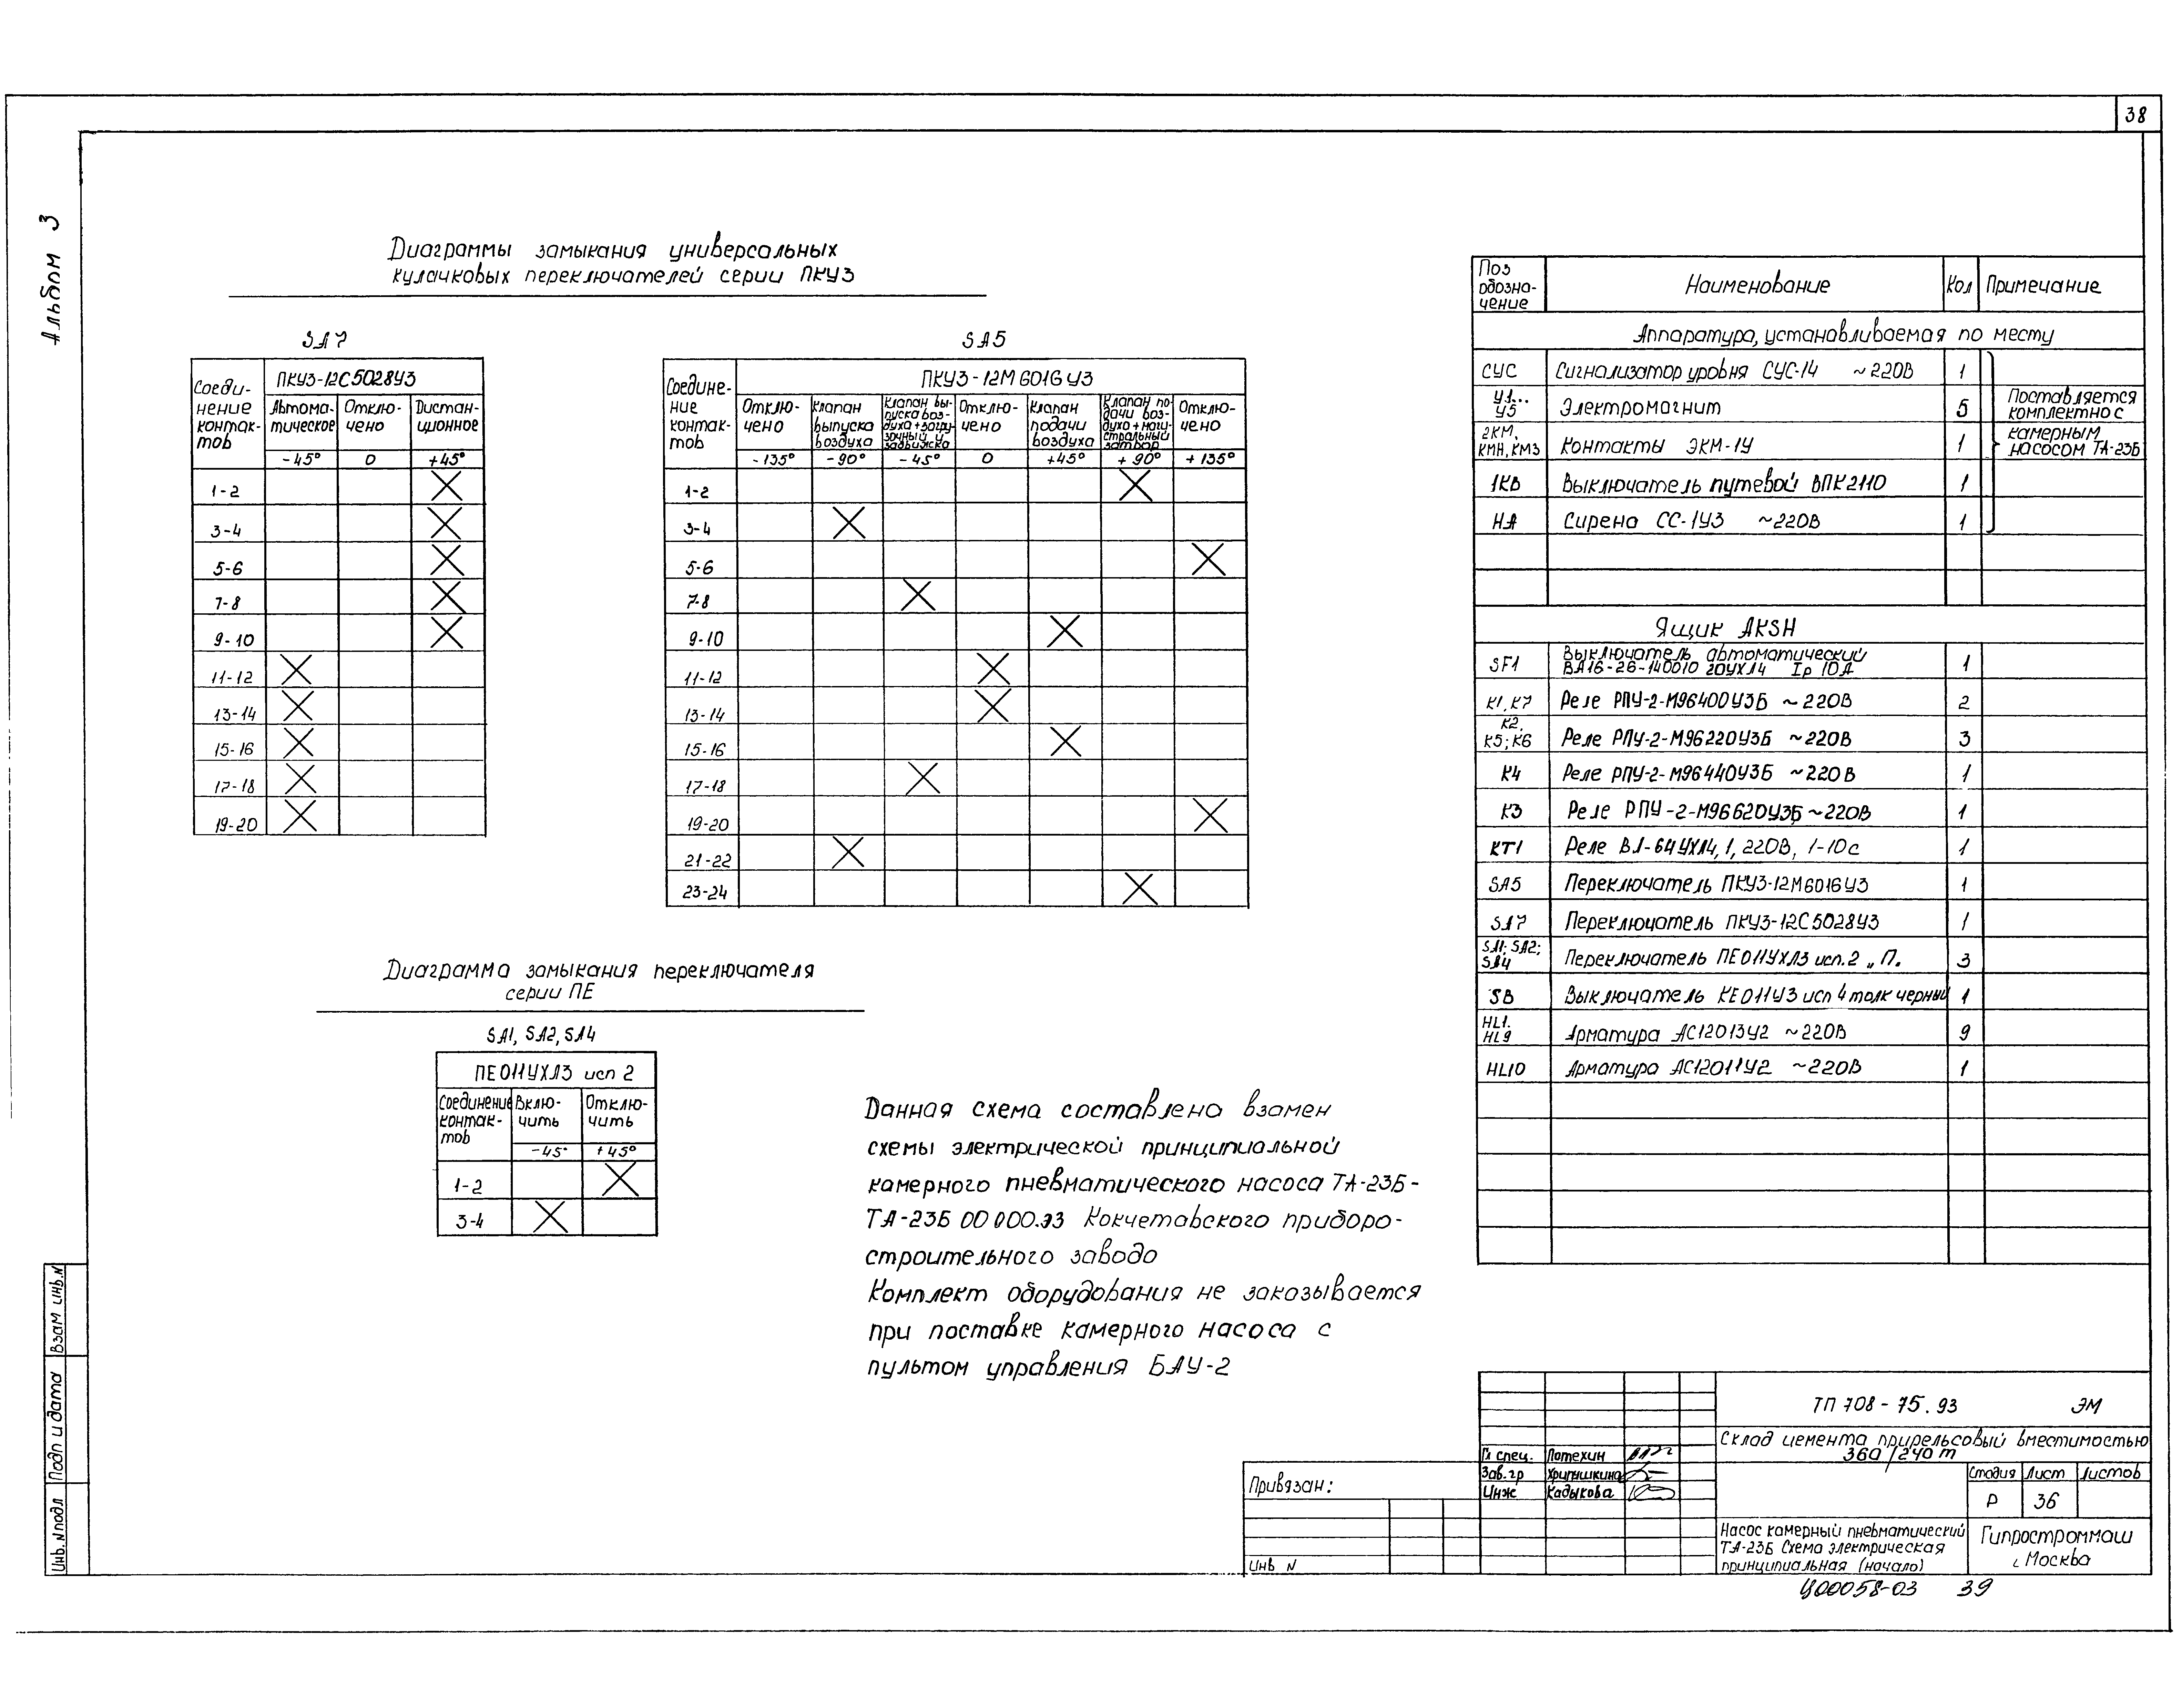 38
Альбом 3
Диаграммы замыкания универсальных
кулачковых переключателей серии ПКУЗ
SA7
Соеди-
нение
контак-
тов
ПКУЗ-12С5028У3
Автома-
тическое
Отклю-
чено
Дистан-
ционное
-45° 0 +45°
1-2
3-4
5-6
7-8
9-10
11-12
13-14
15-16
17-18
19-20
SA5
Соедине-
ние
контак-
тов
ПКУЗ-12М6016У3
Отклю-
чено
Клапан
выпуска
воздуха
Клапан вы-
пуска воз-
духа+загру-
зочный у
задвижка
Отклю-
чено
Клапан
подачи
воздуха
Клапан по-
дачи воз-
духа+маги-
стральный
затвор
Отклю-
чено
-135° -90° -45° 0 +45° +90° +135°
1-2
3-4
5-6
7-8
9-10
11-12
13-14
15-16
17-18
19-20
21-22
23-24
Диаграмма замыкания переключателя
серии ПЕ
SA1, SA2, SA4
ПЕ011УХЛ3 исп 2
Соединение
контак-
тов
Вклю-
чить
Отклю-
чить
-45° +45°
1-2
3-4
Данная схема составлена взамен
схемы электрической принципиальной
камерного пневматического насоса ТА-23Б-
ТА-23Б 00 000.Э3 Кокчетавского приборо-
строительного завода
Комплект оборудования не заказывается
при поставке камерного насоса с
пультом управления БАУ-2
Поз
обозна-
чение
Наименование Кол Примечание
Аппаратура, устанавливаемая по месту
СУС Сигнализатор уровня СУС-14 ~220В 1
У1...
У5 Электромагнит 5
2КМ,
КМН, КМЗ Контакты ЭКМ-1У 1
1КВ Выключатель путевой ВПК2110 1
НА Сирена СС-1У3 ~220В 1
Поставляется
комплектно с
камерным
насосом ТА-23Б
Ящик AKSH
SF1 Выключатель автоматический
ВА16-26-140010 20УХЛ4 Iр 10А 1
К1, К7 Реле РПУ-2-М96400У3Б ~220В 2
К2,
К5; К6 Реле РПУ-2-М96220У3Б ~220В 3
К4 Реле РПУ-2-М96440У3Б ~220В 1
К3 Реле РПУ-2-М96620У3Б ~220В 1
КТ1 Реле ВЛ-64УХЛ4, 1, 220В, 1-10с 1
SA5 Переключатель ПКУЗ-12М6016У3 1
SA7 Переключатель ПКУЗ-12С5028У3 1
SA1; SA2;
SA4 Переключатель ПЕ011УХЛ3 исп.2 „П. 3
SB Выключатель КЕ011У3 исп 4 толк черный 1
HL1.
HL9 Арматура АС12013У2 ~220В 9
HL10 Арматура АС12011У2 ~220В 1
ТП 708-75.93 ЭМ
Склад цемента прирельсовый вместимостью
360/240 т
Гл спец. Потехин
Зав.гр
Инж Кадыкова
Привязан:
Инв N
Стадия Лист Листов
Р 36
Насос камерный пневматический
ТА-23Б Схема электрическая
принципиальная (начало)
Гипростроммаш
г Москва
Ц00058-03 39
Взам инв.N
Подп и дата
Инв. N подл